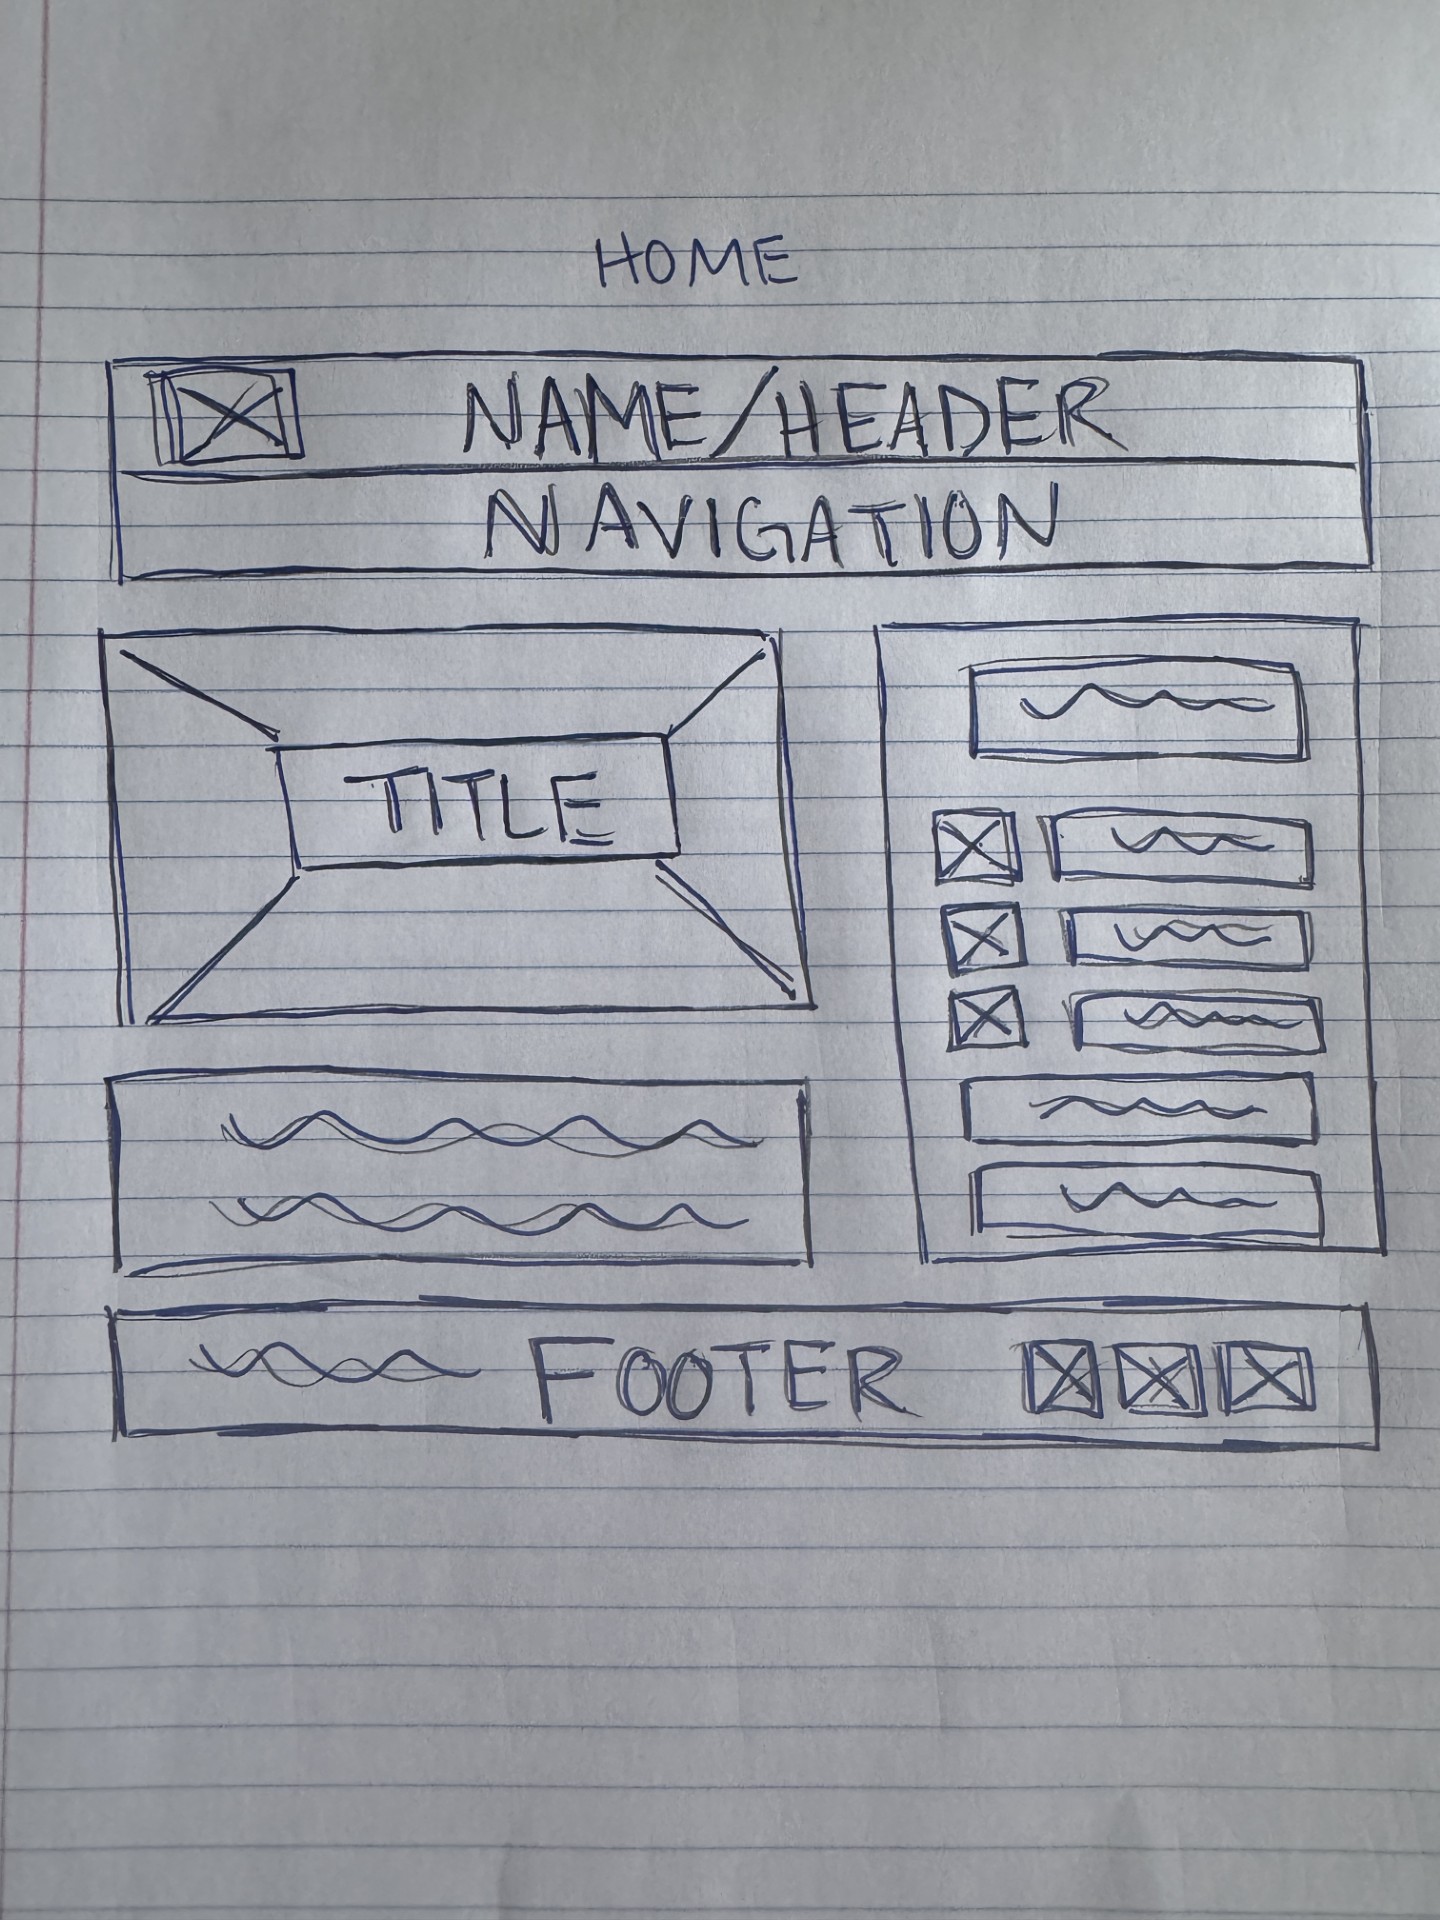 HOME
NAME/HEADER
NAVIGATION
TITLE
FOOTER